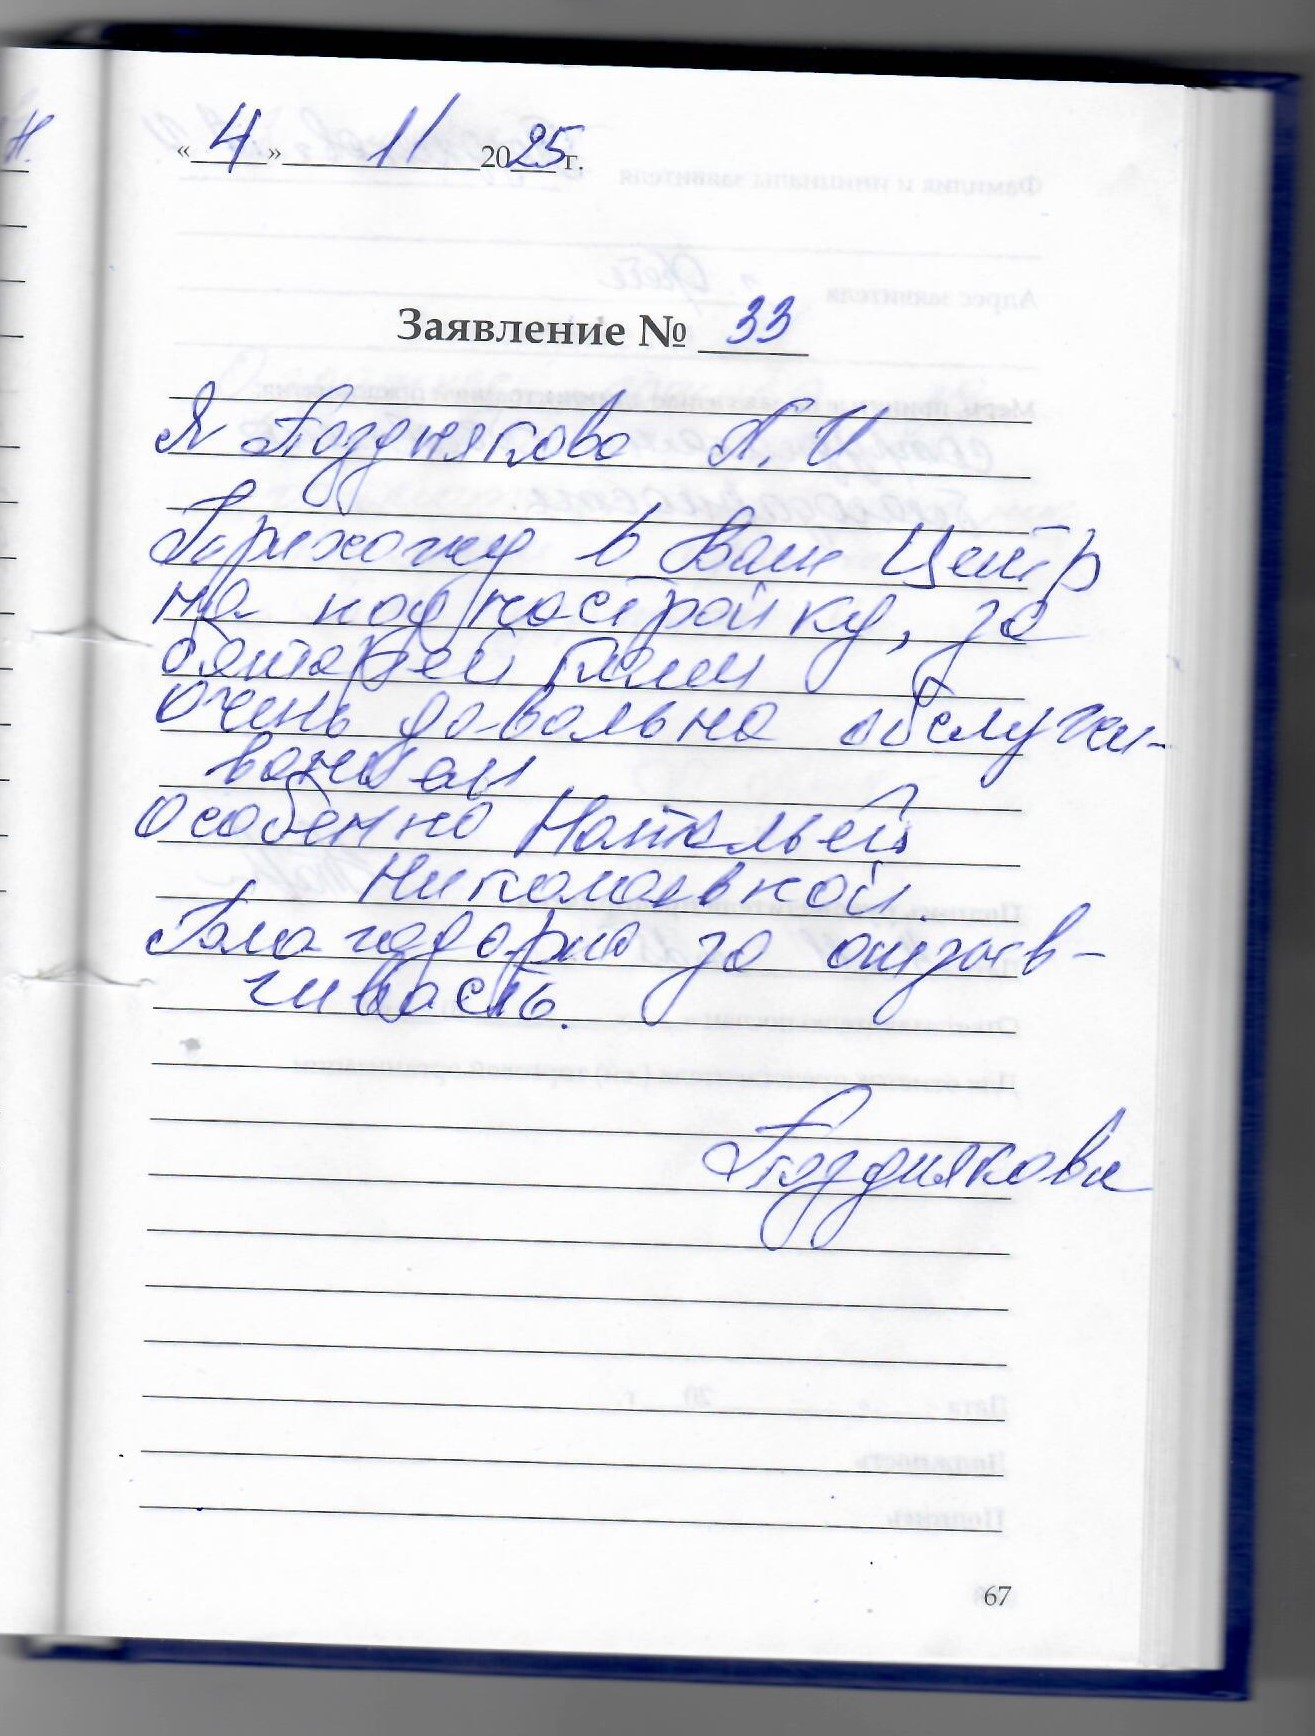 « 4 » 11 2025 г.
Заявление № 33
Я Позднякова А. И
Прихожу в Ваш Центр
на поднастройку, за
батарейками
очень довольна обслужи-
ванием
особенно Натальей
Николаевной.
Благодарю за отзыв-
чивость.
Позднякова
67